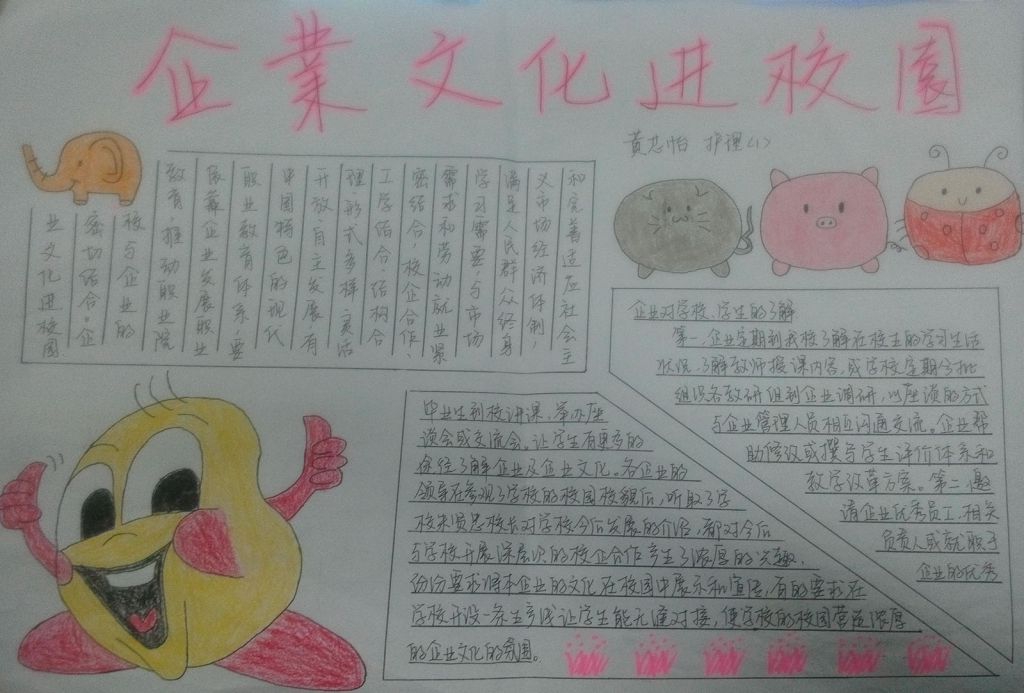 企業文化进校園
黄忍怡 护理(1)
和完善适应社会主
义市场经济体制,
满足人民群众终身
学习需要,与市场
需求和劳动就业紧
密结合,校企合作、
工学结合,结构合
理,形式多样,灵活
开放,自主发展,有
中国特色的现代
职业教育体系,要
依靠企业发展职业
教育,推动职业院
校与企业的
密切结合。企
业文化进校园
企业对学校、学生的了解
第一,企业定期到我校了解在校生的学习生活
状况,了解教师授课内容,或学校定期分批
组织各教研组到企业调研,以座谈的方式
与企业管理人员相互沟通交流。企业帮
助修改或撰写学生评价体系和
教学改革方案。第二,邀
请企业优秀员工、相关
负责人或就职于
企业的优秀
毕业生到校讲课、举办座
谈会或交流会。让学生有更多的
途径了解企业及企业文化。各企业的
领导在参观了学校的校园校貌后,听取了学
校朱贤昆校长对学校今后发展的介绍,都对今后
与学校开展深层次的校企合作产生了浓厚的兴趣。
纷纷要求将本企业的文化在校园中展示和宣传,有的要求在
学校开设一条生产线让学生能无缝对接,使学校的校园营造浓厚
的企业文化的氛围。